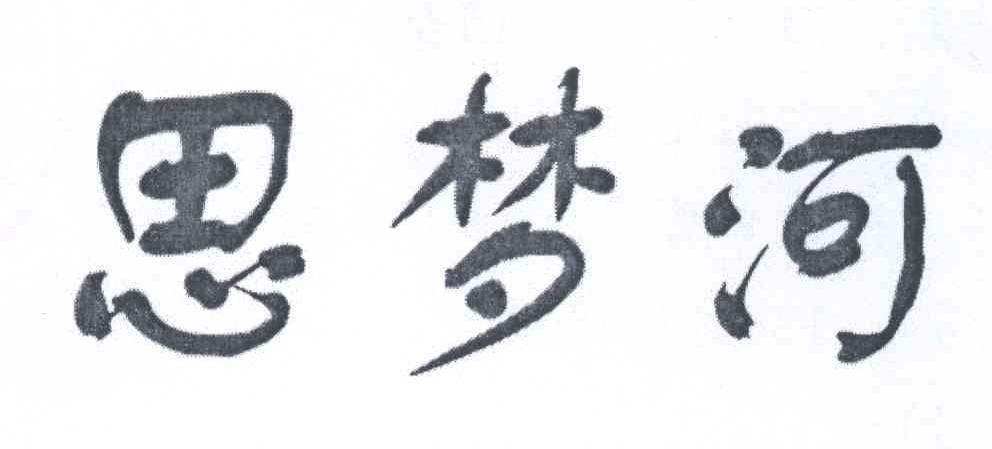 思梦河